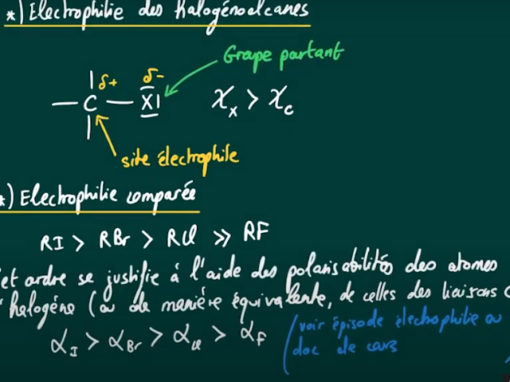 *) Electrophilie des halogénoalcanes
Grape partant
δ+ δ-
— C — X| χx > χc
site électrophile
*) Electrophilie comparée
RI > RBr > RCl >> RF
et ordre se justifie à l'aide des polarisabilités des atomes
halogène (ou de manière équivalente, de celles des liaisons C
αI > αBr > αCl > αF
(voir épisode électrophilie ou
doc de cours